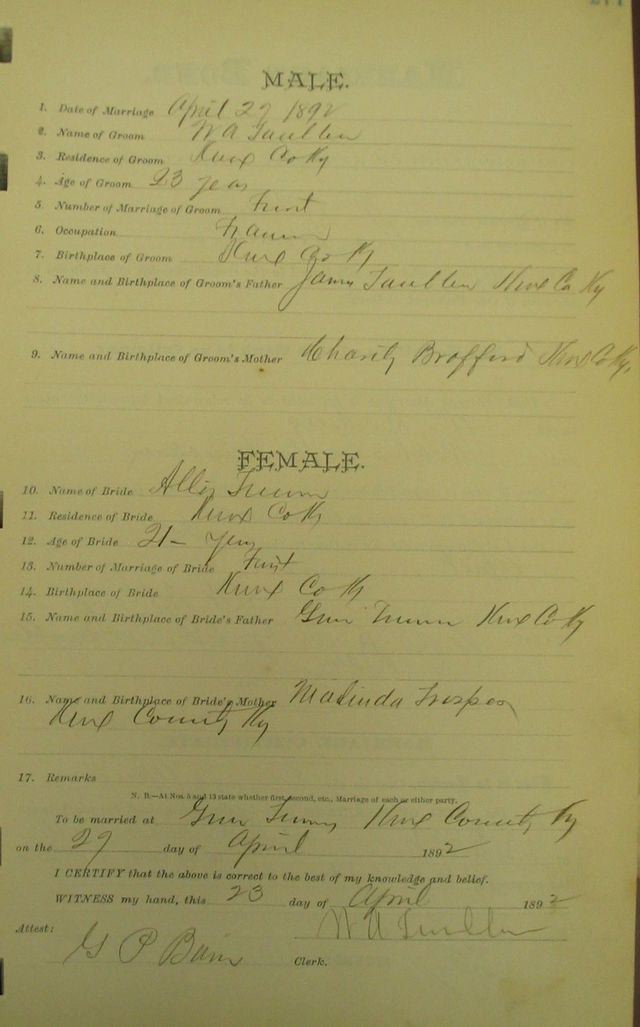 MALE.
1. Date of Marriage April 27 1892
2. Name of Groom W A
3. Residence of Groom Knox Co Ky
4. Age of Groom 23 years
5. Number of Marriage of Groom First
6. Occupation Farmer
7. Birthplace of Groom Knox Co Ky
8. Name and Birthplace of Groom's Father James Knox Co Ky
9. Name and Birthplace of Groom's Mother Charity Brafford Knox Co Ky.
FEMALE.
10. Name of Bride
11. Residence of Bride Knox Co Ky
12. Age of Bride 21 - years
13. Number of Marriage of Bride First
14. Birthplace of Bride Knox Co Ky
15. Name and Birthplace of Bride's Father Knox Co Ky
16. Name and Birthplace of Bride's Mother Malinda
Knox County Ky
17. Remarks
N. B.—At Nos. 5 and 13 state whether first, second, etc., Marriage of each or either party.
To be married at Knox County Ky
on the 27 day of April 1892
I CERTIFY that the above is correct to the best of my knowledge and belief.
WITNESS my hand, this 23 day of April 1892
Attest: W A
G P Bain Clerk.